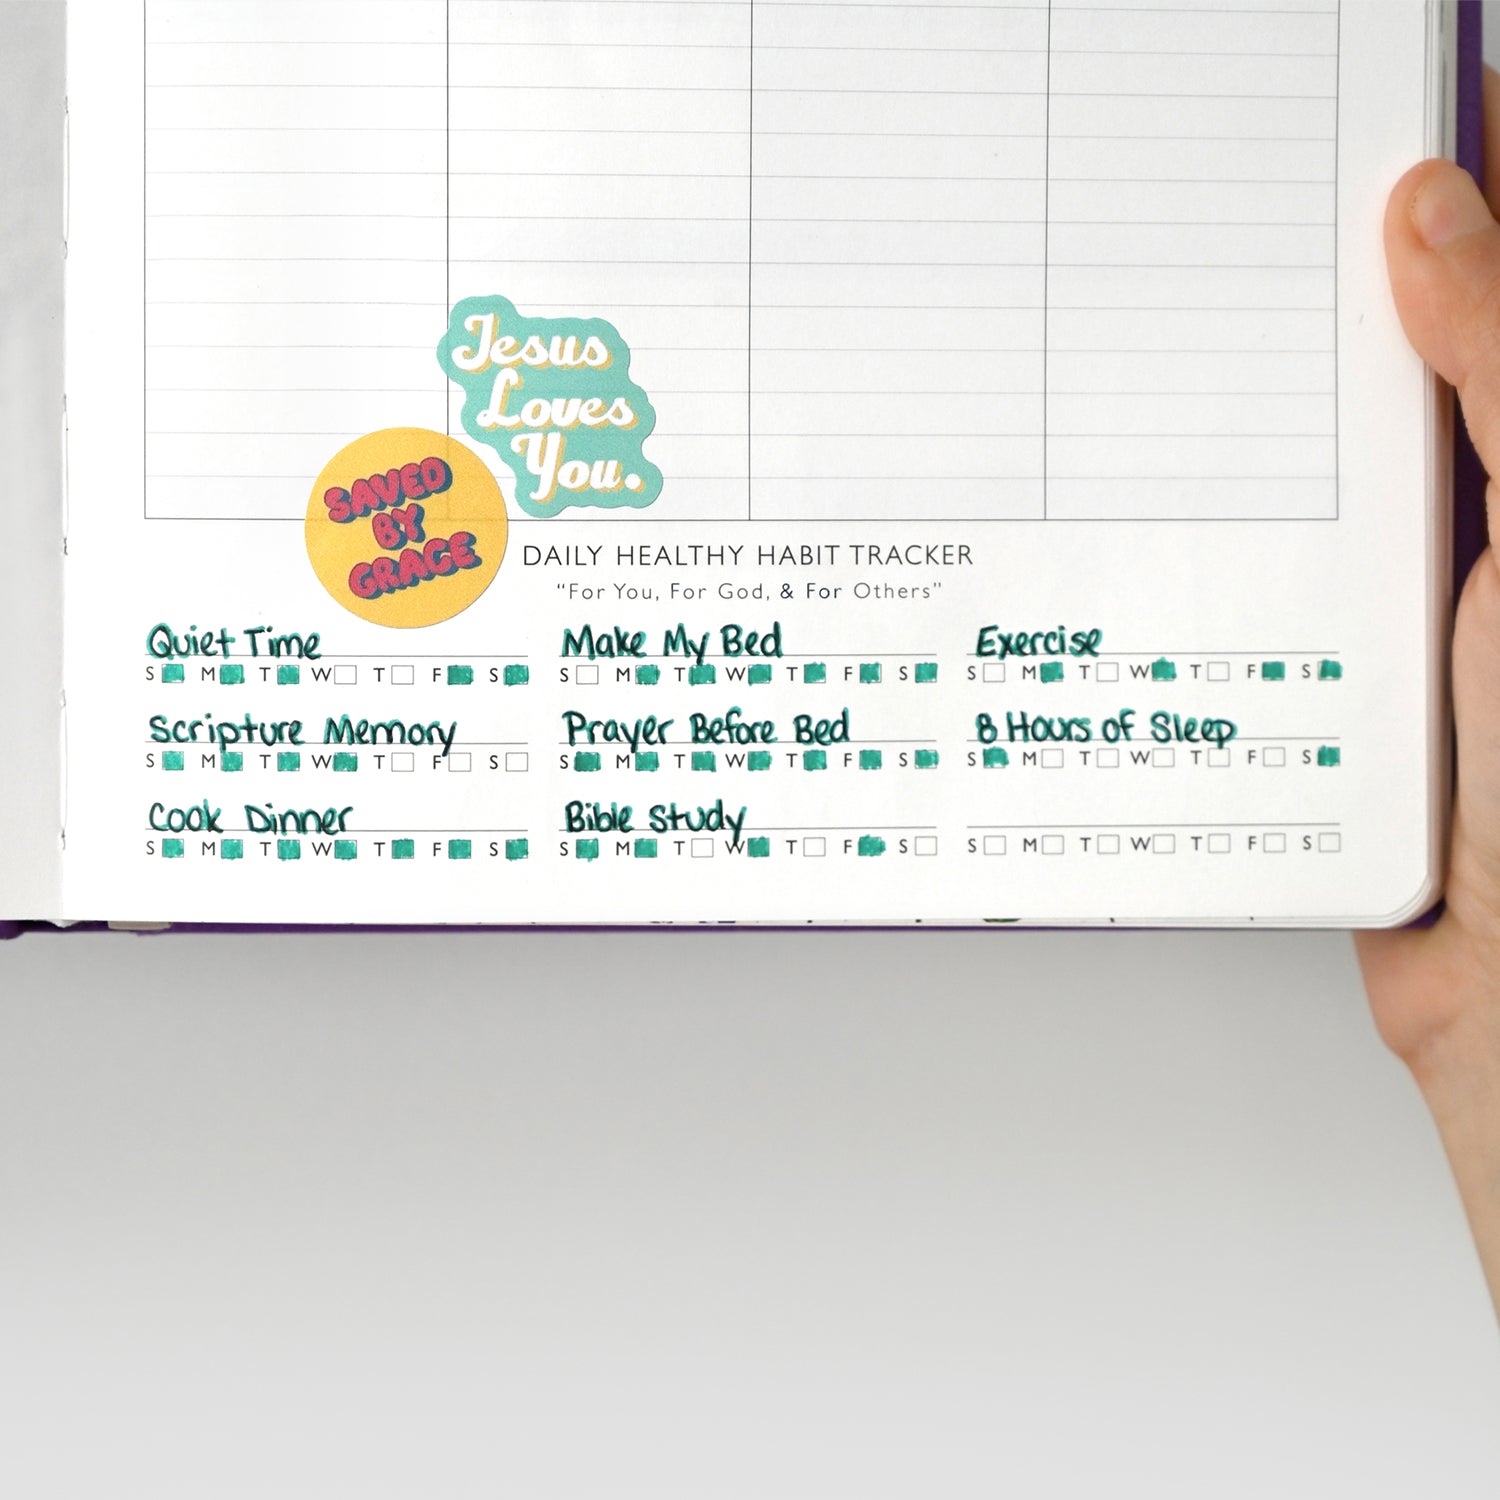 Jesus
Loves
You.
SAVED
BY
GRACE
DAILY HEALTHY HABIT TRACKER
“For You, For God, & For Others”
Quiet Time
S M T W T F S
Make My Bed
S M T W T F S
Exercise
S M T W T F S
Scripture Memory
S M T W T F S
Prayer Before Bed
S M T W T F S
8 Hours of Sleep
S M T W T F S
Cook Dinner
S M T W T F S
Bible Study
S M T W T F S
S M T W T F S